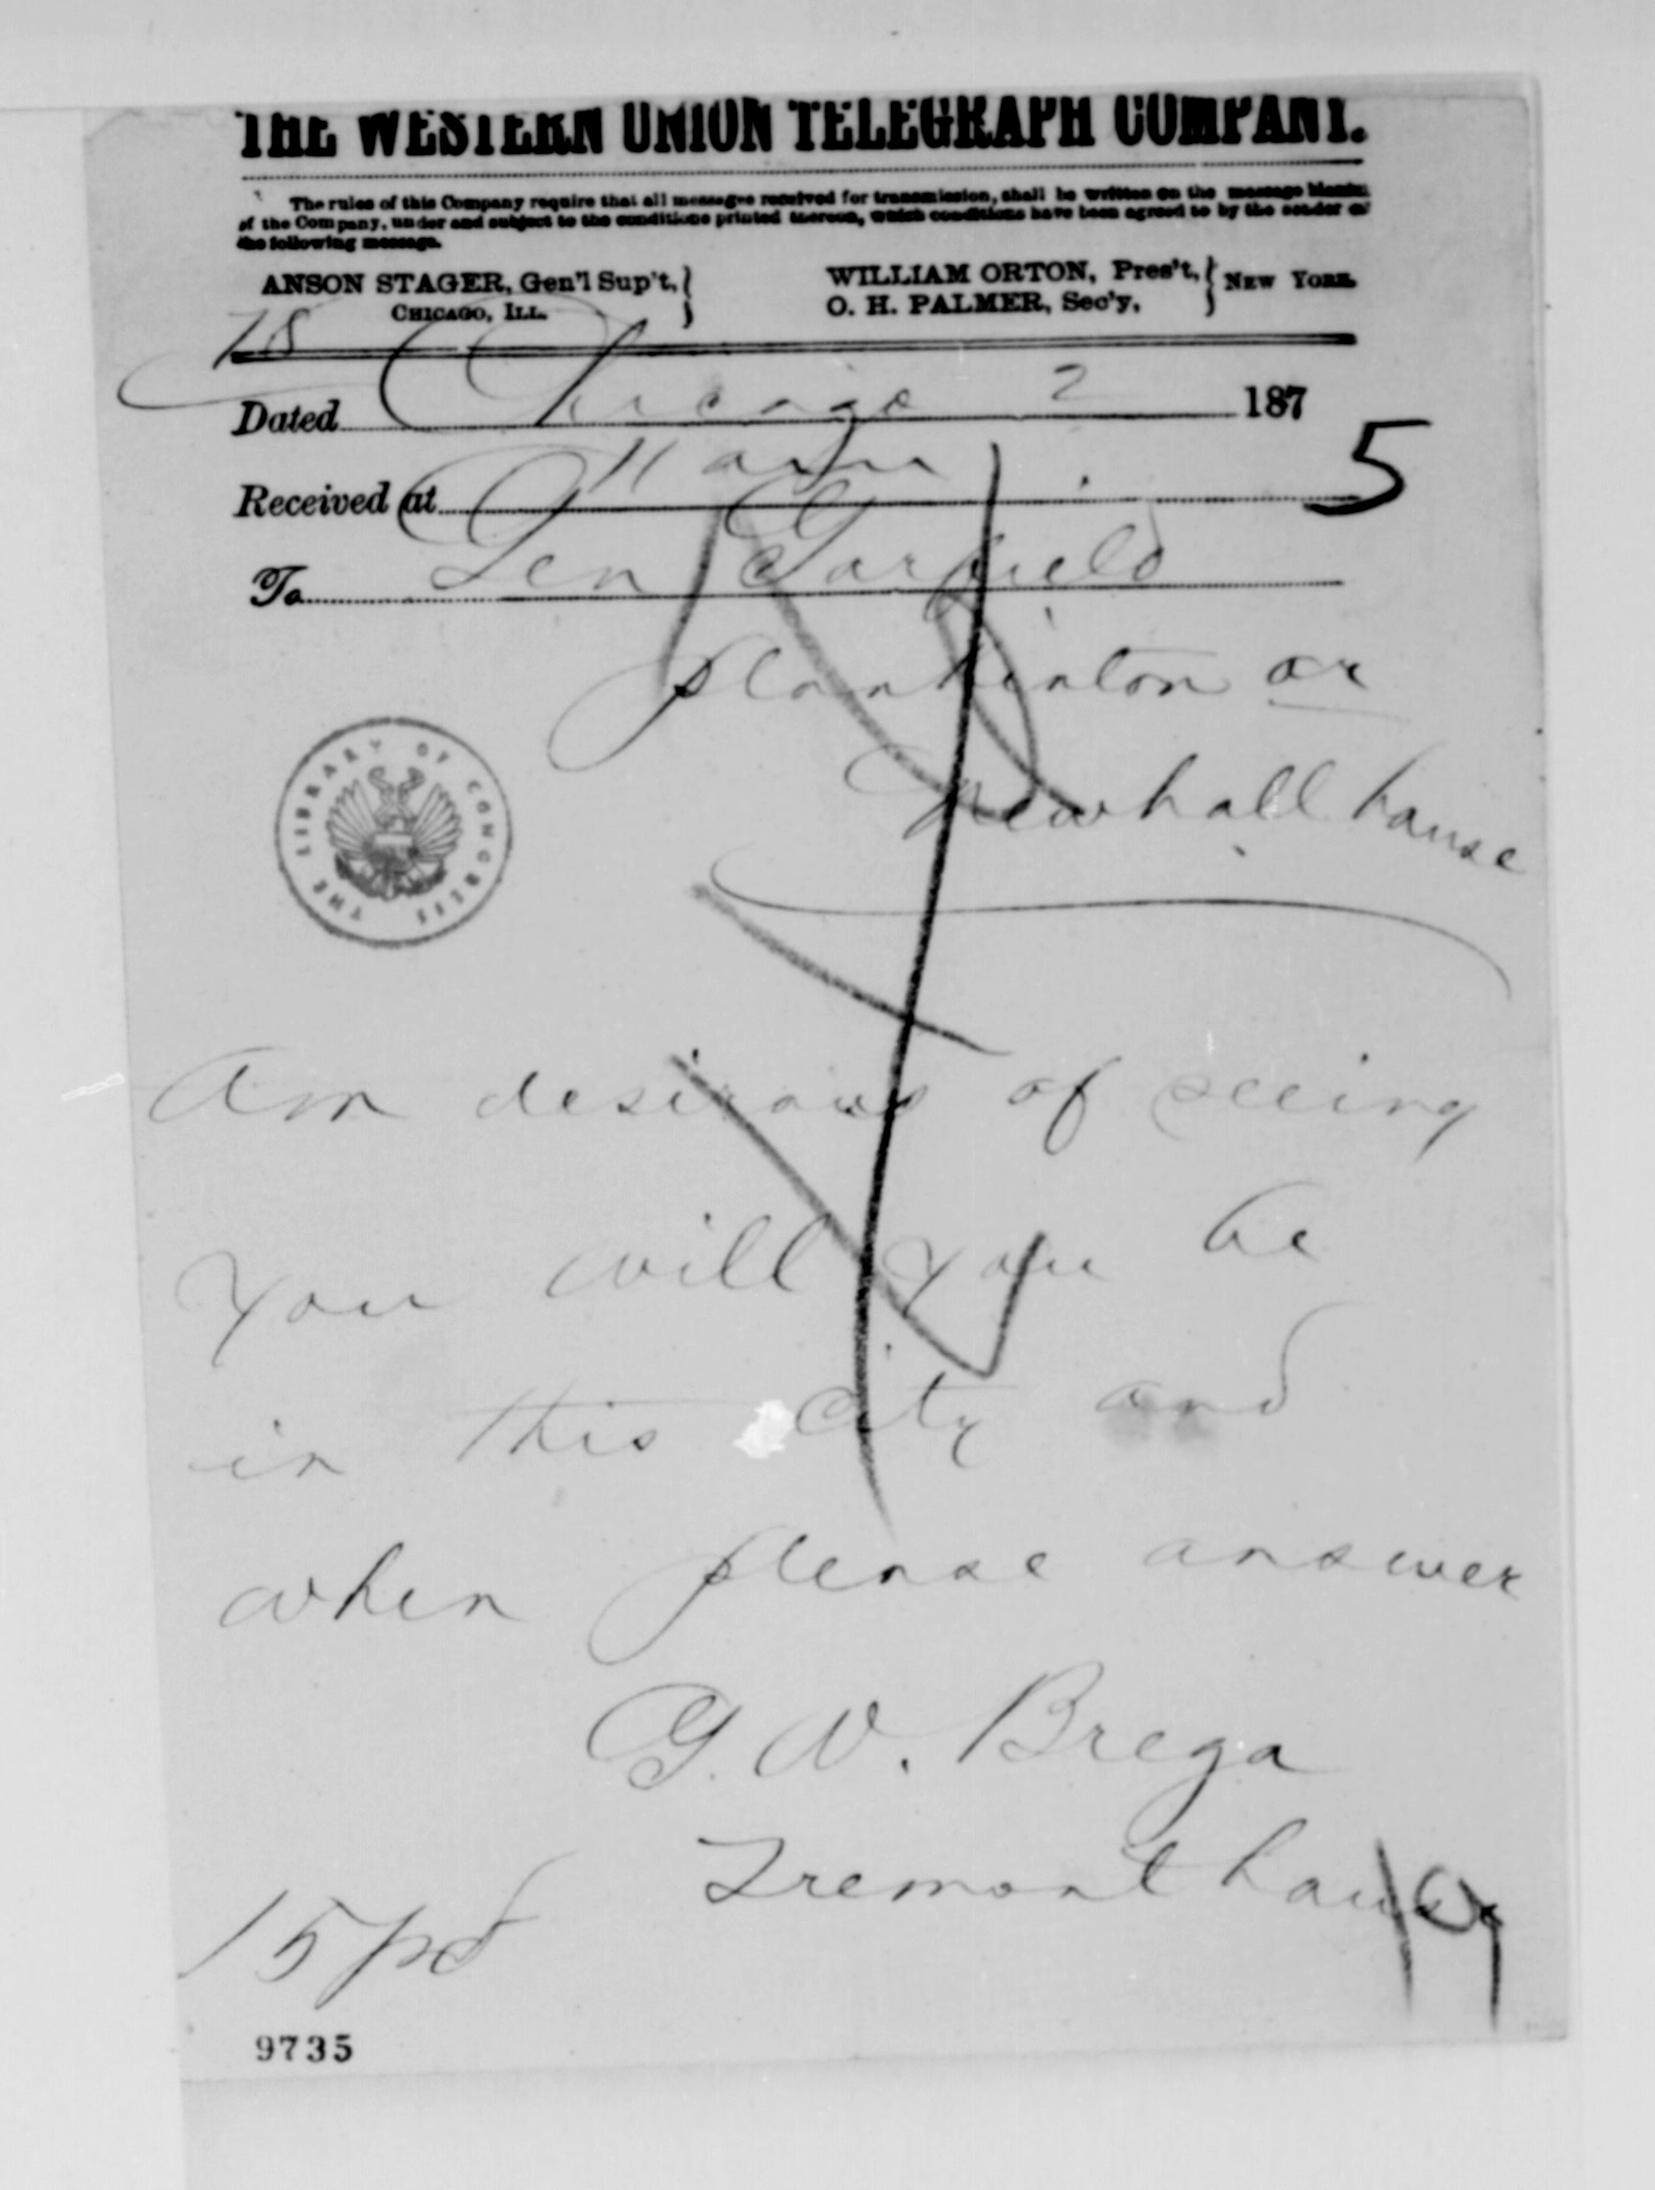 THE WESTERN UNION TELEGRAPH COMPANY.
The rules of this Company require that all messages received for transmission, shall be written on the message blanks
of the Company, under and subject to the conditions printed thereon, which conditions have been agreed to by the sender of
the following message.
ANSON STAGER, Gen'l Sup't,
CHICAGO, ILL.
WILLIAM ORTON, Pres't,
O. H. PALMER, Sec'y,
NEW YORK.
78
Dated Chicago 2 1875
Received at
To Gen Garfield
Plankinton or
Newhall house
THE LIBRARY OF CONGRESS
Am desirous of seeing
you will you be
in this city and
when please answer
G. W. Brega
Tremont house
15 pd
9735